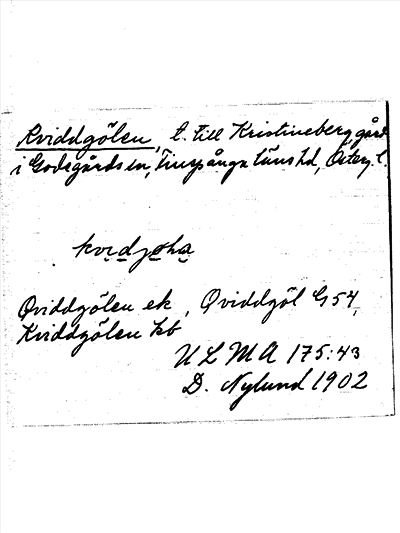 Kviddgölen, t. till Kristineberg gård
i Godegårds sn, Finspånga läns hd, Österg. l.
Qviddgölen ek, Qviddgöl G54,
Kviddgölen kb
ULMA 175:43
D. Nylund 1902